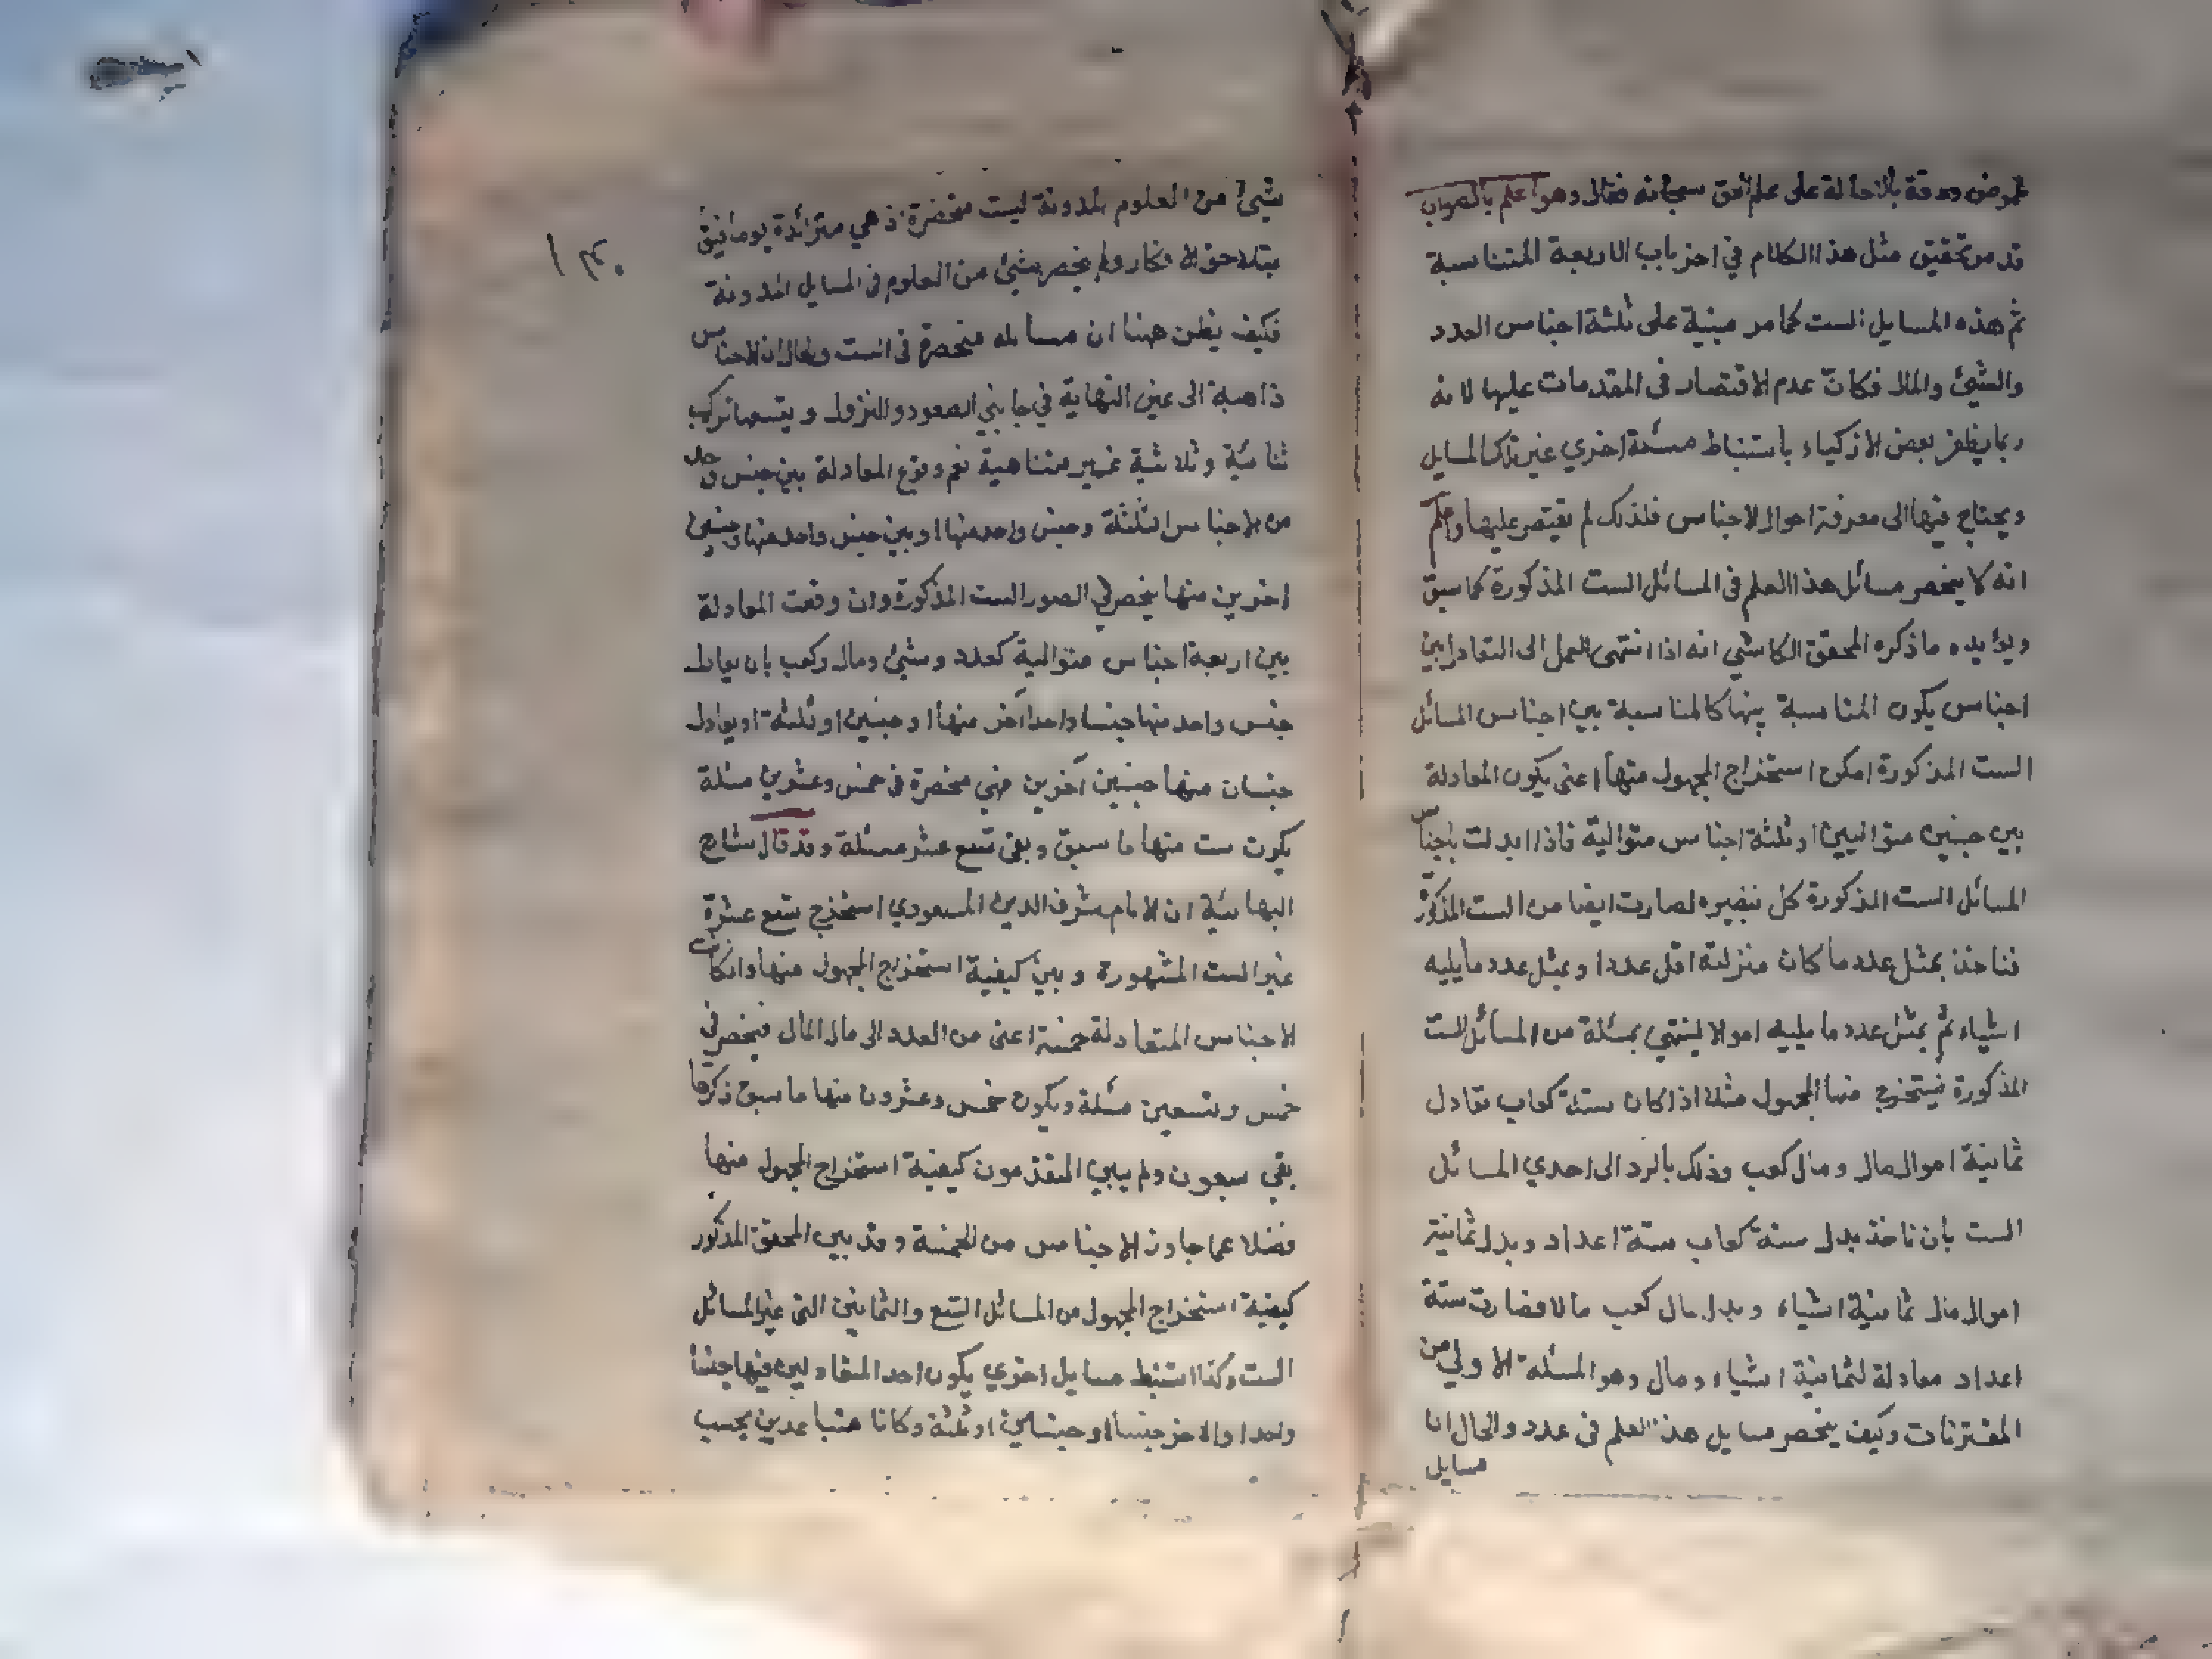 غموض ودقة بالاحالة على علم الحق سبحانه فقال وهو اعلم بالصواب
قد مر تحقيق مثل هذا الكلام في اخر باب الاربعة المتناسبة
ثم هذه المسايل الست كما مر مبنية على ثلثة اجناس العدد
والشئ والمال فكانّ عدم الاقتصار فى المقدمات عليها لانه
ربما يظفر بعض الاذكياء باستنباط مسئلة اخري غير تلك المسايل
ويحتاج فيها الى معرفة احوال الاجناس فلذلك لم يقتصر عليها واعلم
انه لا ينحصر مسائل هذا العلم فى المسائل الست المذكورة كما سبق
ويؤيده ما ذكره المحقق الكاشي انه اذا انتهى العمل الى التعادل بين
اجناس يكون المناسبة بينها كالمناسبة بين اجناس المسائل
الست المذكورة امكن استخراج المجهول منها اعنى يكون المعادلة
بين جنسين متواليين او ثلثة اجناس متوالية فاذا ابدلت باجناس
المسائل الست المذكورة كل بنظيره لصارت ايضا من الست المذكورة
فناخذ بمثل عدد ما كان منزلته اقل عددا وبمثل عدد ما يليه
اشياء ثم بمثل عدد ما يليه اموالا لينتهي بمسئلة من المسائل الست
المذكورة فيستخرج منها المجهول مثلا اذا كان ستة كعاب تعادل
ثمانية اموال مال ومال كعب وذلك بالرد الى احدي المسائل
الست بان ناخذ بدل ستة كعاب ستة اعداد وبدل ثمانية
اموال مال ثمانية اشياء وبدل مال كعب مالا فصارت ستة
اعداد معادلة لثمانية اشياء ومال وهو المسئلة الاولي من
المقترنات وكيف ينحصر مسايل هذا العلم فى عدد والحال ان
مسايل
شيئ من العلوم المدونة ليست منحصرة اذ هي متزائدة يوما فيوما
بتلاحق الافكار ولم ينحصر شيئ من العلوم فى المسايل المدونة
فكيف يظن ههنا ان مسائله منحصرة فى الست والحال ان الاجناس
ذاهبة الى غير النهاية في جانبي الصعود والنزول ويتسع تركب
ثنائية وثلاثية غير متناهية نعم وقوع المعادلة بين جنس واحد
من الاجناس الثلثة وجنس واحد منها او بين جنس واحد منها وجنسين
اخرين منها ينحصر في الصور الست المذكورة وان وقعت المعادلة
بين اربعة اجناس متوالية كعدد وشئ ومال وكعب بان يعادل
جنس واحد منها جنسا واحدا آخر منها او جنسين او ثلثة او يعادل
جنسان منها جنسين آخرين فهي منحصرة فى خمس وعشرين مسئلة
يكون ست منها ما سبق وبقى تسع عشر مسئلة وقد قال شارح
البهائية ان الامام شرف الدين المسعودي استخرج تسع عشرة
غير الست المشهورة وبين كيفية استخراج المجهول منها وان كانت
الاجناس المتعادلة خمسة اعنى من العدد الى مال المال فينحصر في
خمس وتسعين مسئلة ويكون خمس وعشرون منها ما سبق ذكرها
بقي سبعون ولم يبين المتقدمون كيفية استخراج المجهول منها
فضلا عما جاوز الاجناس من الخمسة وقد بين المحقق المذكور
كيفية استخراج المجهول من المسائل التسع والثمانين التى غير المسائل
الست وكذا استنبط مسايل اخري يكون احد المتعادلين فيها جنسا
واحدا والاخر جنسا او جنسين او ثلثة وكانا متباعدين بحسب